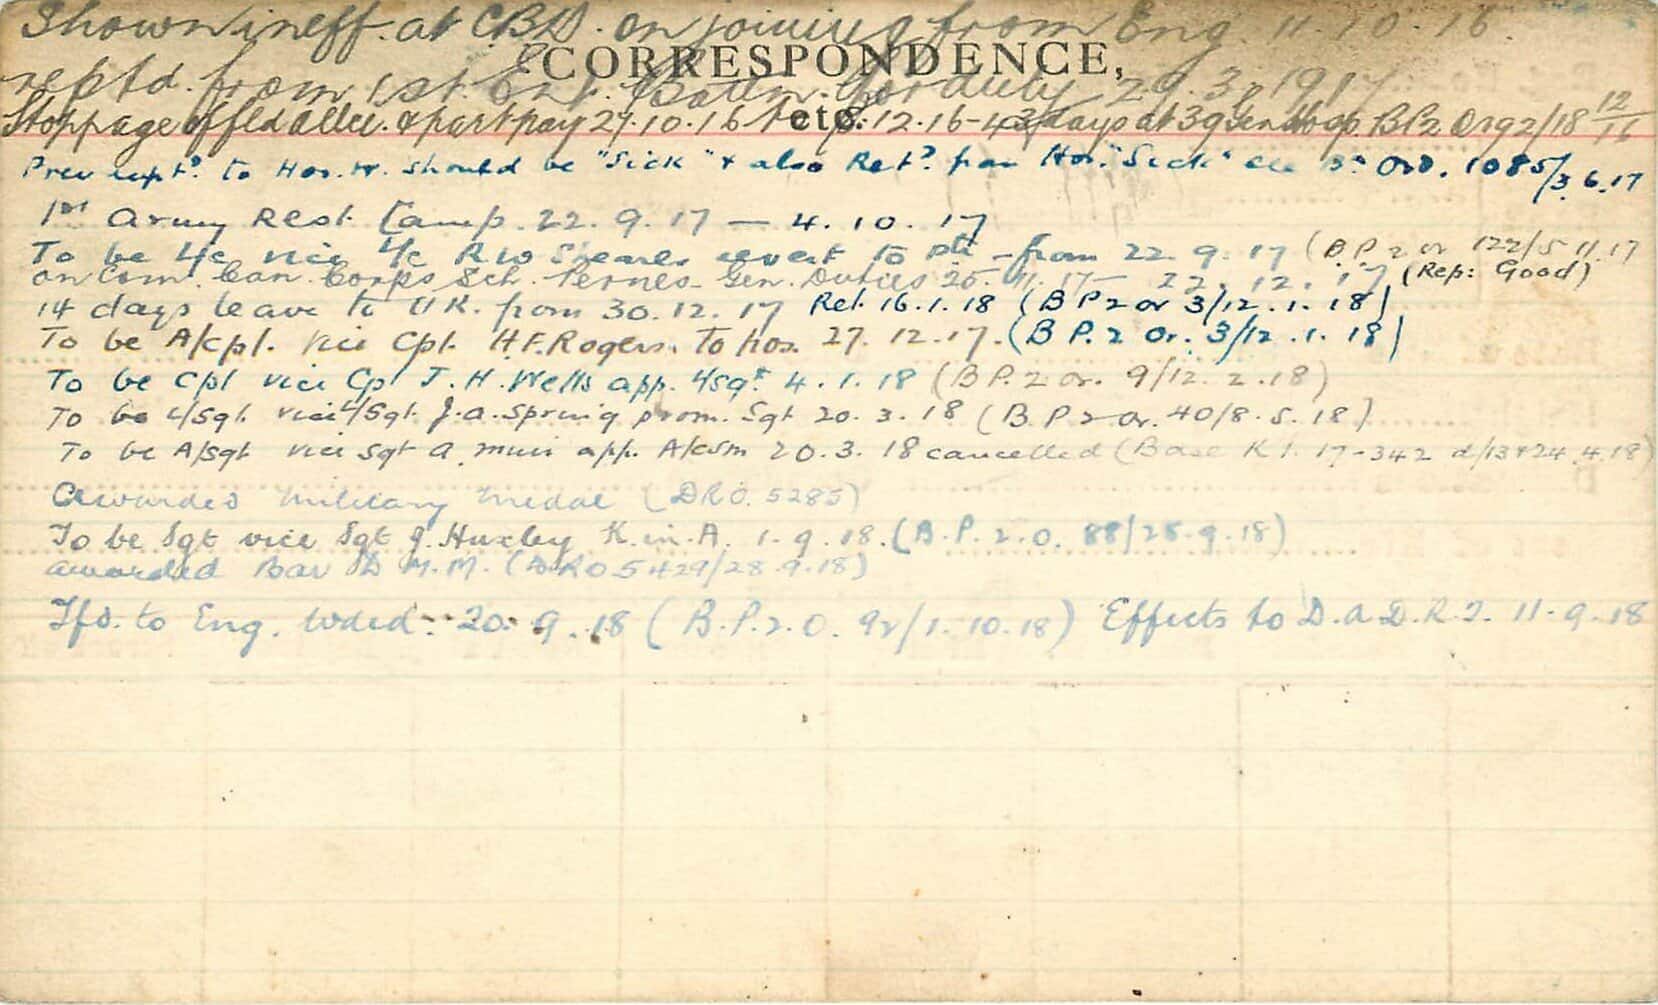 Shown ineff. at CBD. on joining from Eng 11.10.16
CORRESPONDENCE,
reptd. from 1st. Ent. Battn. for duty 29.3.1917
etc.
Stoppage of fld allce. & part pay 27.10.16 to 8.12.16 - 43 days at 39 Gen Hosp BP2 Or 92/18 12/16
Prev rept? to Hos. W. should be "Sick" & also Ret? from Hos. "Sick" Ord. 1085/3.6.17
1st Army Rest Camp. 22.9.17 — 4.10.17
To be L/c vice L/c R W Speare revert to pte - from 22.9.17 (B.P.2 or 122/5 11.17
on Com. Can. Corps Sch. Pernes - Gen. Duties 25.11.17 — 22.12.17 (Rep: Good)
14 days leave to UK. from 30.12.17 Ret. 16.1.18 (BP2 or 3/12.1.18)
To be A/cpl. vice Cpl. H.F. Rogers. To hos. 27.12.17. (B P.2 Or. 3/12.1.18)
To be Cpl vice Cpl J.H. Wells app. L/sgt 4.1.18 (B P.2 or. 9/12.2.18)
To be L/Sgt. vice L/Sgt. J.A. Spring prom. Sgt 20.3.18 (B.P 2 or. 40/8.5.18)
To be A/Sgt vice Sgt A. Muir app. A/CSM 20.3.18 cancelled (Base K 1.17-342 d/13+24.4.18)
Awarded Military Medal (DRO. 5285)
To be Sgt vice Sgt J. Huxley K.in.A. 1.9.18. (B.P.2.O. 88/28.9.18)
awarded Bar to M.M. (DRO 5429/28.9.18)
Tfd. to Eng. Wded. 20.9.18 (B.P.2.O. 92/1.10.18) Effects to D.A.D.R.T. 11-9-18